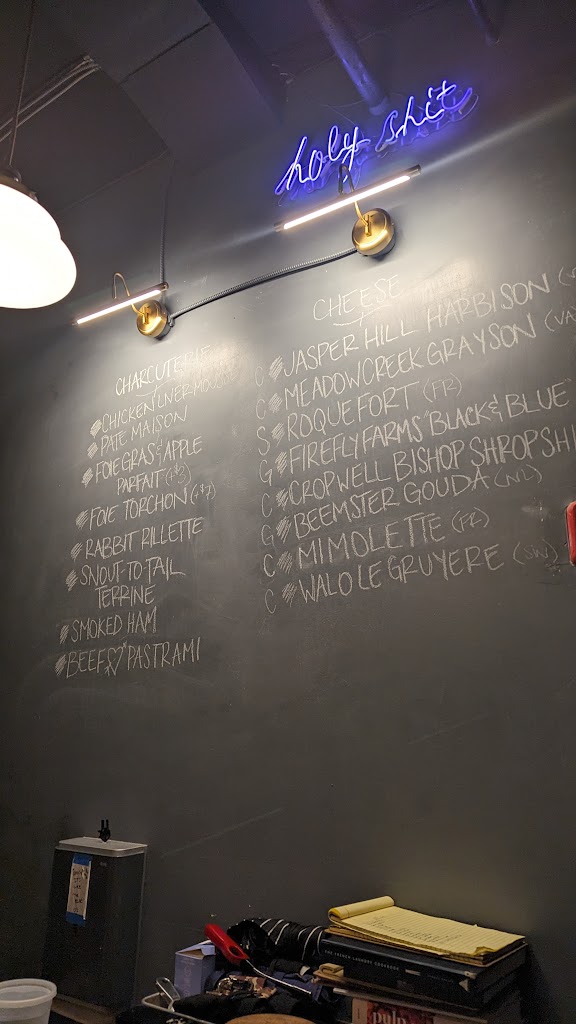 holy shit
CHARCUTERIE
CHICKEN LIVER MOUSSE
PATE MAISON
FOIE GRAS & APPLE
PARFAIT (+$3)
FOIE TORCHON (+$7)
RABBIT RILLETTE
SNOUT-TO-TAIL
TERRINE
SMOKED HAM
BEEF ♡ PASTRAMI
CHEESE
C JASPER HILL HARBISON
C MEADOWCREEK GRAYSON (VA)
S ROQUEFORT (FR)
G FIREFLY FARMS "BLACK & BLUE
C CROPWELL BISHOP SHROPSHI
G BEEMSTER GOUDA (NL)
C MIMOLETTE (FR)
C WALO LE GRUYERE (SW)
THE FRENCH LAUNDRY COOKBOOK